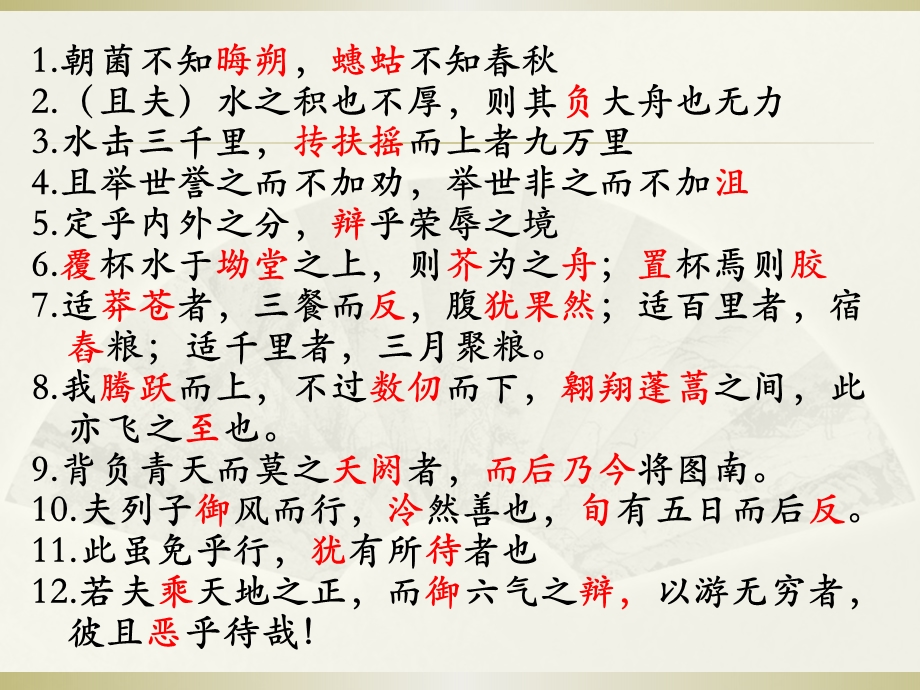 1.朝菌不知晦朔，蟪蛄不知春秋
2.（且夫）水之积也不厚，则其负大舟也无力
3.水击三千里，抟扶摇而上者九万里
4.且举世誉之而不加劝，举世非之而不加沮
5.定乎内外之分，辩乎荣辱之境
6.覆杯水于坳堂之上，则芥为之舟；置杯焉则胶
7.适莽苍者，三餐而反，腹犹果然；适百里者，宿
舂粮；适千里者，三月聚粮。
8.我腾跃而上，不过数仞而下，翱翔蓬蒿之间，此
亦飞之至也。
9.背负青天而莫之夭阏者，而后乃今将图南。
10.夫列子御风而行，泠然善也，旬有五日而后反。
11.此虽免乎行，犹有所待者也
12.若夫乘天地之正，而御六气之辩，以游无穷者，
彼且恶乎待哉！